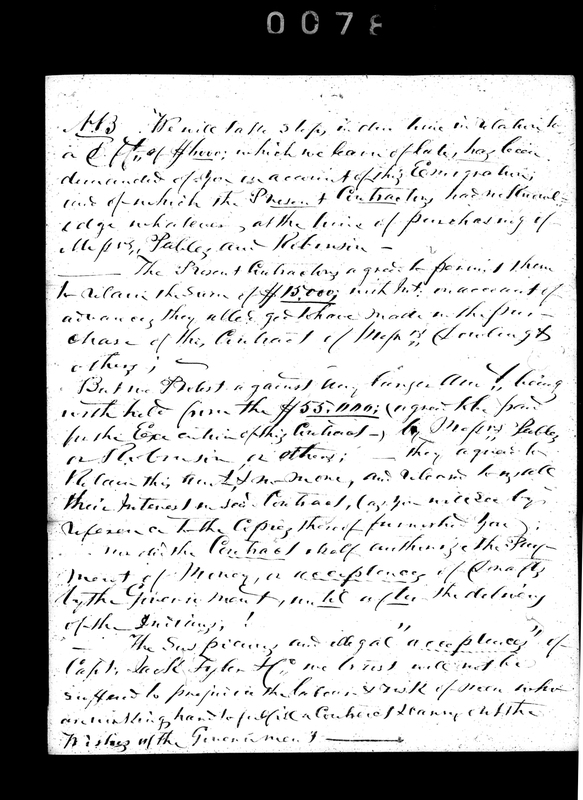 0078
NB We will take steps in due time in relation to
a Dft, of $ which we learn of late, has been
demanded of you on account of this Emigration;
and of which the Present Contractors had no knowl=
edge whatever, at the time of purchasing of
Messrs, and Robinson —
The Present Contractors agree to permit them
to retain the sum of $15,000; with Int. on account of
advances they alledge to have made in the pur-
chase of this Contract of Messrs, Dowling &
others; —
But we Protest against any larger Am't, being
withheld from the $55.000; (agreed to be paid
for the Execution of this Contract —) by Messrs,
or Robinson, or others; — They agree to
Retain this am't, & no more, and released to us all
their Interest in said Contract, (as you will see by
reference to the Copies thereof furnished you);
nor did the Contract itself authorize the Pay-
ment of Money, or acceptances of Drafts
by the Government, until after the delivery
of the Indians; !
— The Suspicious and illegal "acceptances" of
Capt. Jack Tyler &c, we trust will not be
suffered to prejudice the labour & risk of men who
are working hard to fulfill a Contract & carry out the
Wishes of the Government —